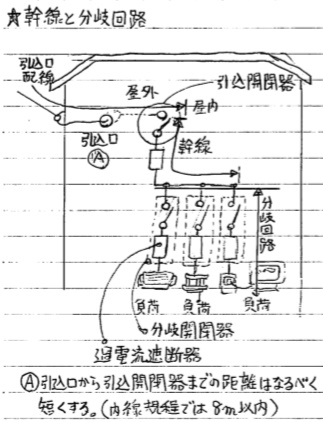 ☆幹線と分岐回路
引込口
配線
屋外
屋内
引込開閉器
引込口
Ⓐ
幹線
分岐回路
負荷
負荷
負荷
分岐開閉器
過電流遮断器
Ⓐ引込口から引込開閉器までの距離はなるべく
短くする。(内線規程では8m以内)